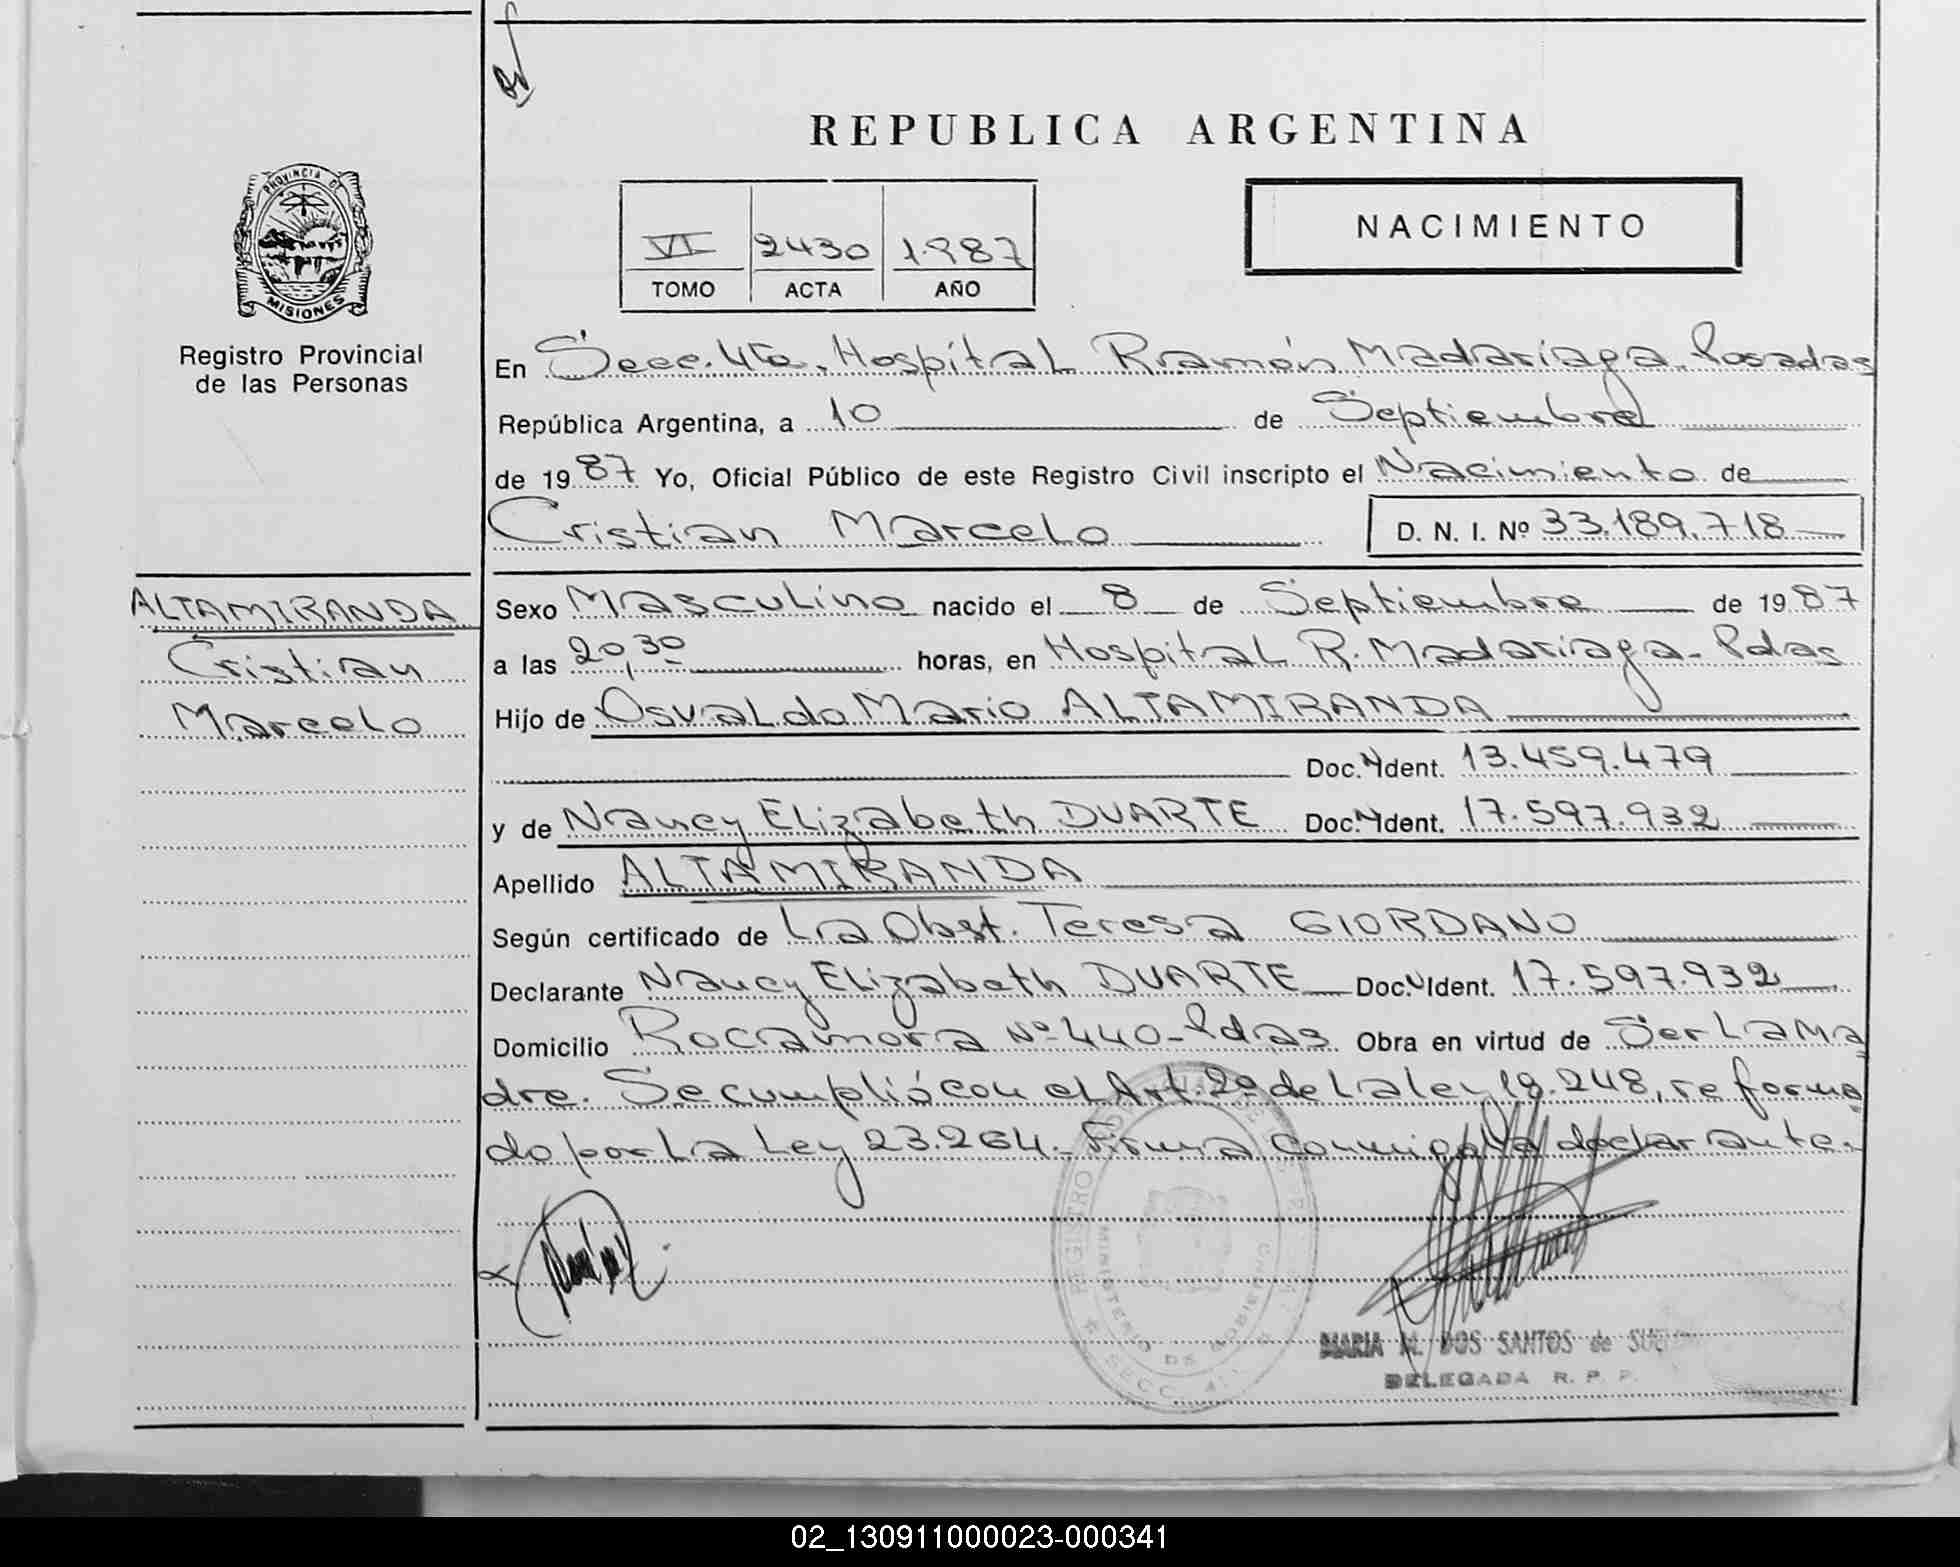 REPUBLICA ARGENTINA
PROVINCIA DE
MISIONES
Registro Provincial
de las Personas
VI 2430 1.987
TOMO ACTA AÑO
NACIMIENTO
En Secc. 4ta. Hospital Rramón Madariaga. Posadas
República Argentina, a 10 de Septiembre
de 1987 Yo, Oficial Público de este Registro Civil inscripto el Nacimiento de
Cristian Marcelo D. N. I. Nº 33.189.718
ALTAMIRANDA
Cristian
Marcelo
Sexo Masculino nacido el 8 de Septiembre de 1987
a las 20,30 horas, en Hospital R. Madariaga - Pdas
Hijo de Osvaldo Mario ALTAMIRANDA
Doc. Ident. 13.459.479
y de Nancy Elizabeth DUARTE Doc. Ident. 17.597.932
Apellido ALTAMIRANDA
Según certificado de La Obst. Teresa GIORDANO
Declarante Nancy Elizabeth DUARTE Doc. Ident. 17.597.932
Domicilio Rocamora Nº 440 - Pdas Obra en virtud de Ser La Ma
dre. Se cumplió con el Art. 2º de La ley 18.248, reforma
do por La Ley 23.264. Firma conmigo la declarante.
REGISTRO
MINISTERIO DE GOBIERNO
SECC. 4
MARIA M. DOS SANTOS de
DELEGADA R. P. P.
02_130911000023-000341